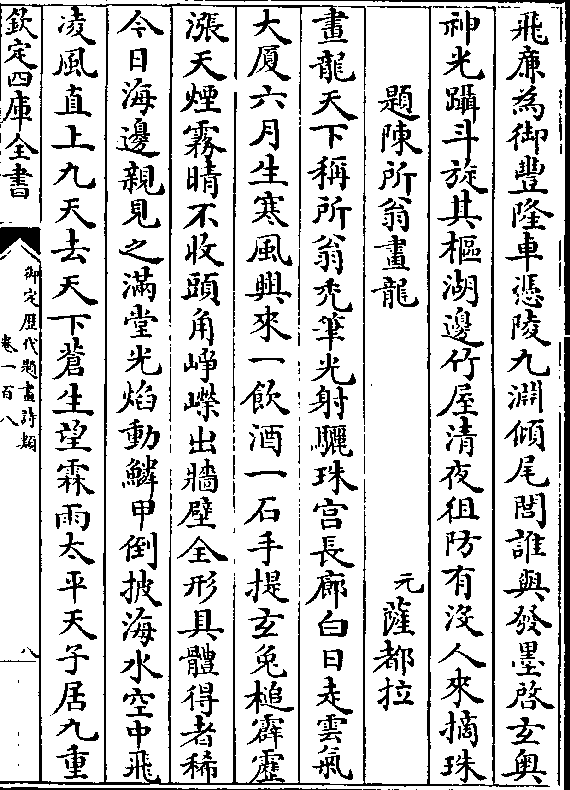 飛廉為御豐隆車憑陵九淵傾尾閭誰與發墨啓玄奥
神光躡斗旋其樞湖邊竹屋清夜徂防有沒人來摘珠
題陳所翁畫龍
元薩都拉
畫龍天下稱所翁禿筆光射驪珠宫長廊白日走雲氣
大厦六月生寒風興來一飲酒一石手提玄兔槌霹靂
漲天煙霧晴不收頭角崢嶸出牆壁全形具體得者稀
今日海邊親見之滿堂光焰動鱗甲倒披海水空中飛
凌風直上九天去天下蒼生望霖雨太平天子居九重
欽定四庫全書
御定歷代題畫詩類
卷一百八
八